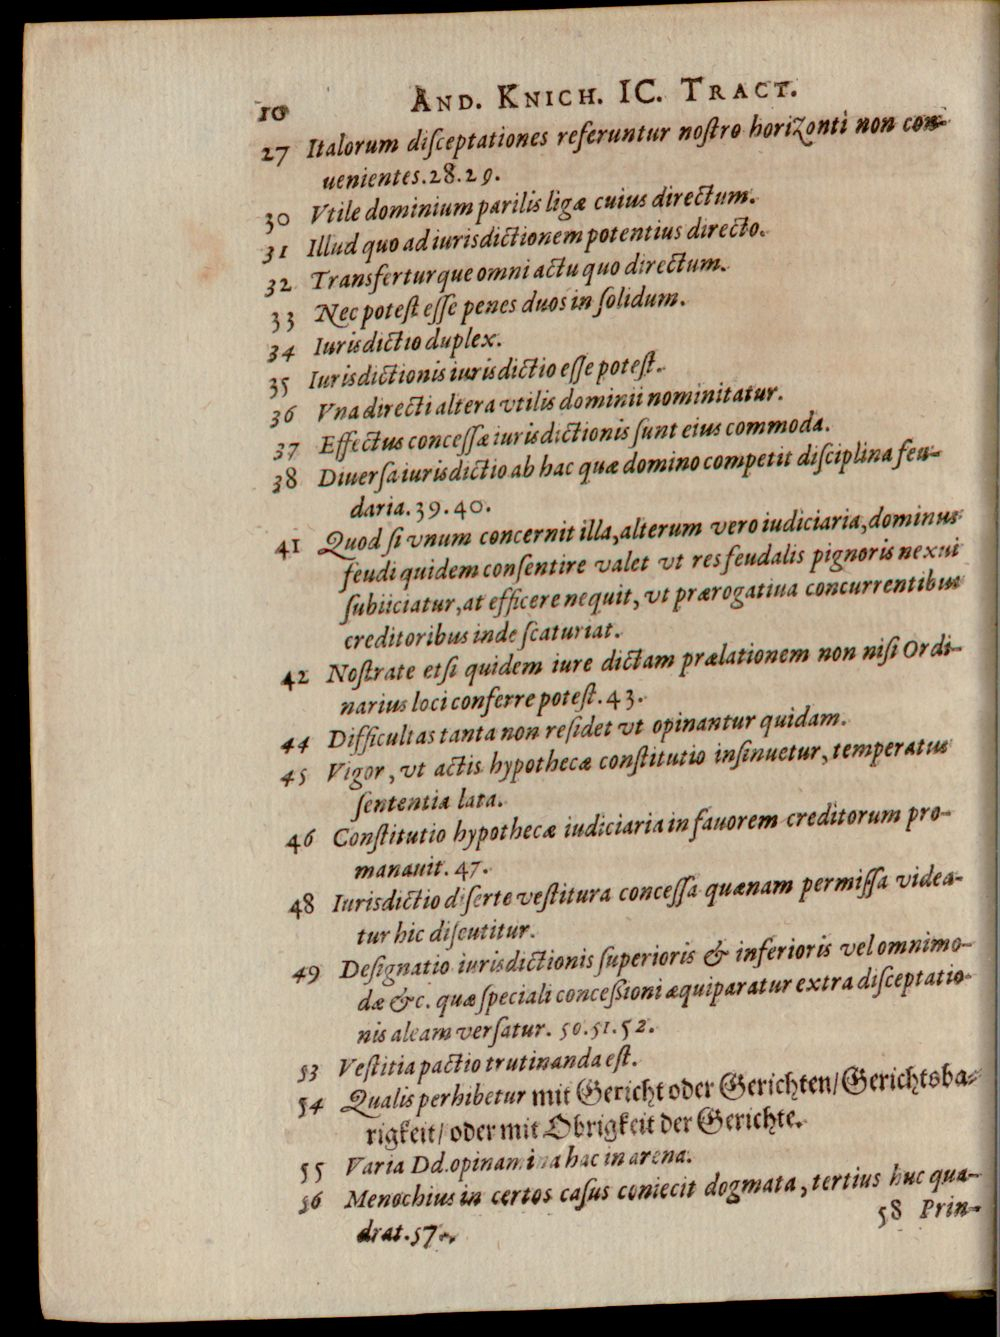 10 AND. KNICH. IC. TRACT.
27 Italorum diſceptationes referuntur noſtro horizonti non con-
uenientes. 28. 29.
30 Vtile dominium parilis ligæ cuius directum.
31 Illud quo ad iurisdictionem potentius directo.
32 Transferturque omni actu quo directum.
33 Nec poteſt eſſe penes duos in ſolidum.
34 Iurisdictio duplex.
35 Iurisdictionis iurisdictio eſſe poteſt.
36 Vna directi altera vtilis dominii nominitatur.
37 Effectus conceſſæ iurisdictionis ſunt eius commoda.
38 Diuerſa iurisdictio ab hac quæ domino competit diſciplina feu-
daria. 39. 40.
41 Quod ſi vnum concernit illa, alterum vero iudiciaria, dominus
feudi quidem conſentire valet vt res feudalis pignoris nexui
ſubiiciatur, at efficere nequit, vt prærogatiua concurrentibus
creditoribus inde ſcaturiat.
42 Noſtrate etſi quidem iure dictam prælationem non niſi Ordi-
narius loci conferre poteſt. 43.
44 Difficultas tanta non reſidet vt opinantur quidam.
45 Vigor, vt actis hypothecæ conſtitutio inſinuetur, temperatus
ſententia lata.
46 Conſtitutio hypothecæ iudiciaria in fauorem creditorum pro-
manauit. 47.
48 Iurisdictio diſerte veſtitura conceſſa quænam permiſſa videa-
tur hic diſcutitur.
49 Deſignatio iurisdictionis ſuperioris & inferioris vel omnimo-
dæ &c. quæ ſpeciali conceßioni æquiparatur extra diſceptatio-
nis aleam verſatur. 50. 51. 52.
53 Veſtitia pactio trutinanda eſt.
54 Qualis perhibetur mit Gericht oder Gerichten/ Gerichtsba-
rigkeit/ oder mit Obrigkeit der Gerichte.
55 Varia Dd. opinamina hac in arena.
56 Menochius in certos caſus coniecit dogmata, tertius huc qua-
drat. 57.
58 Prin-